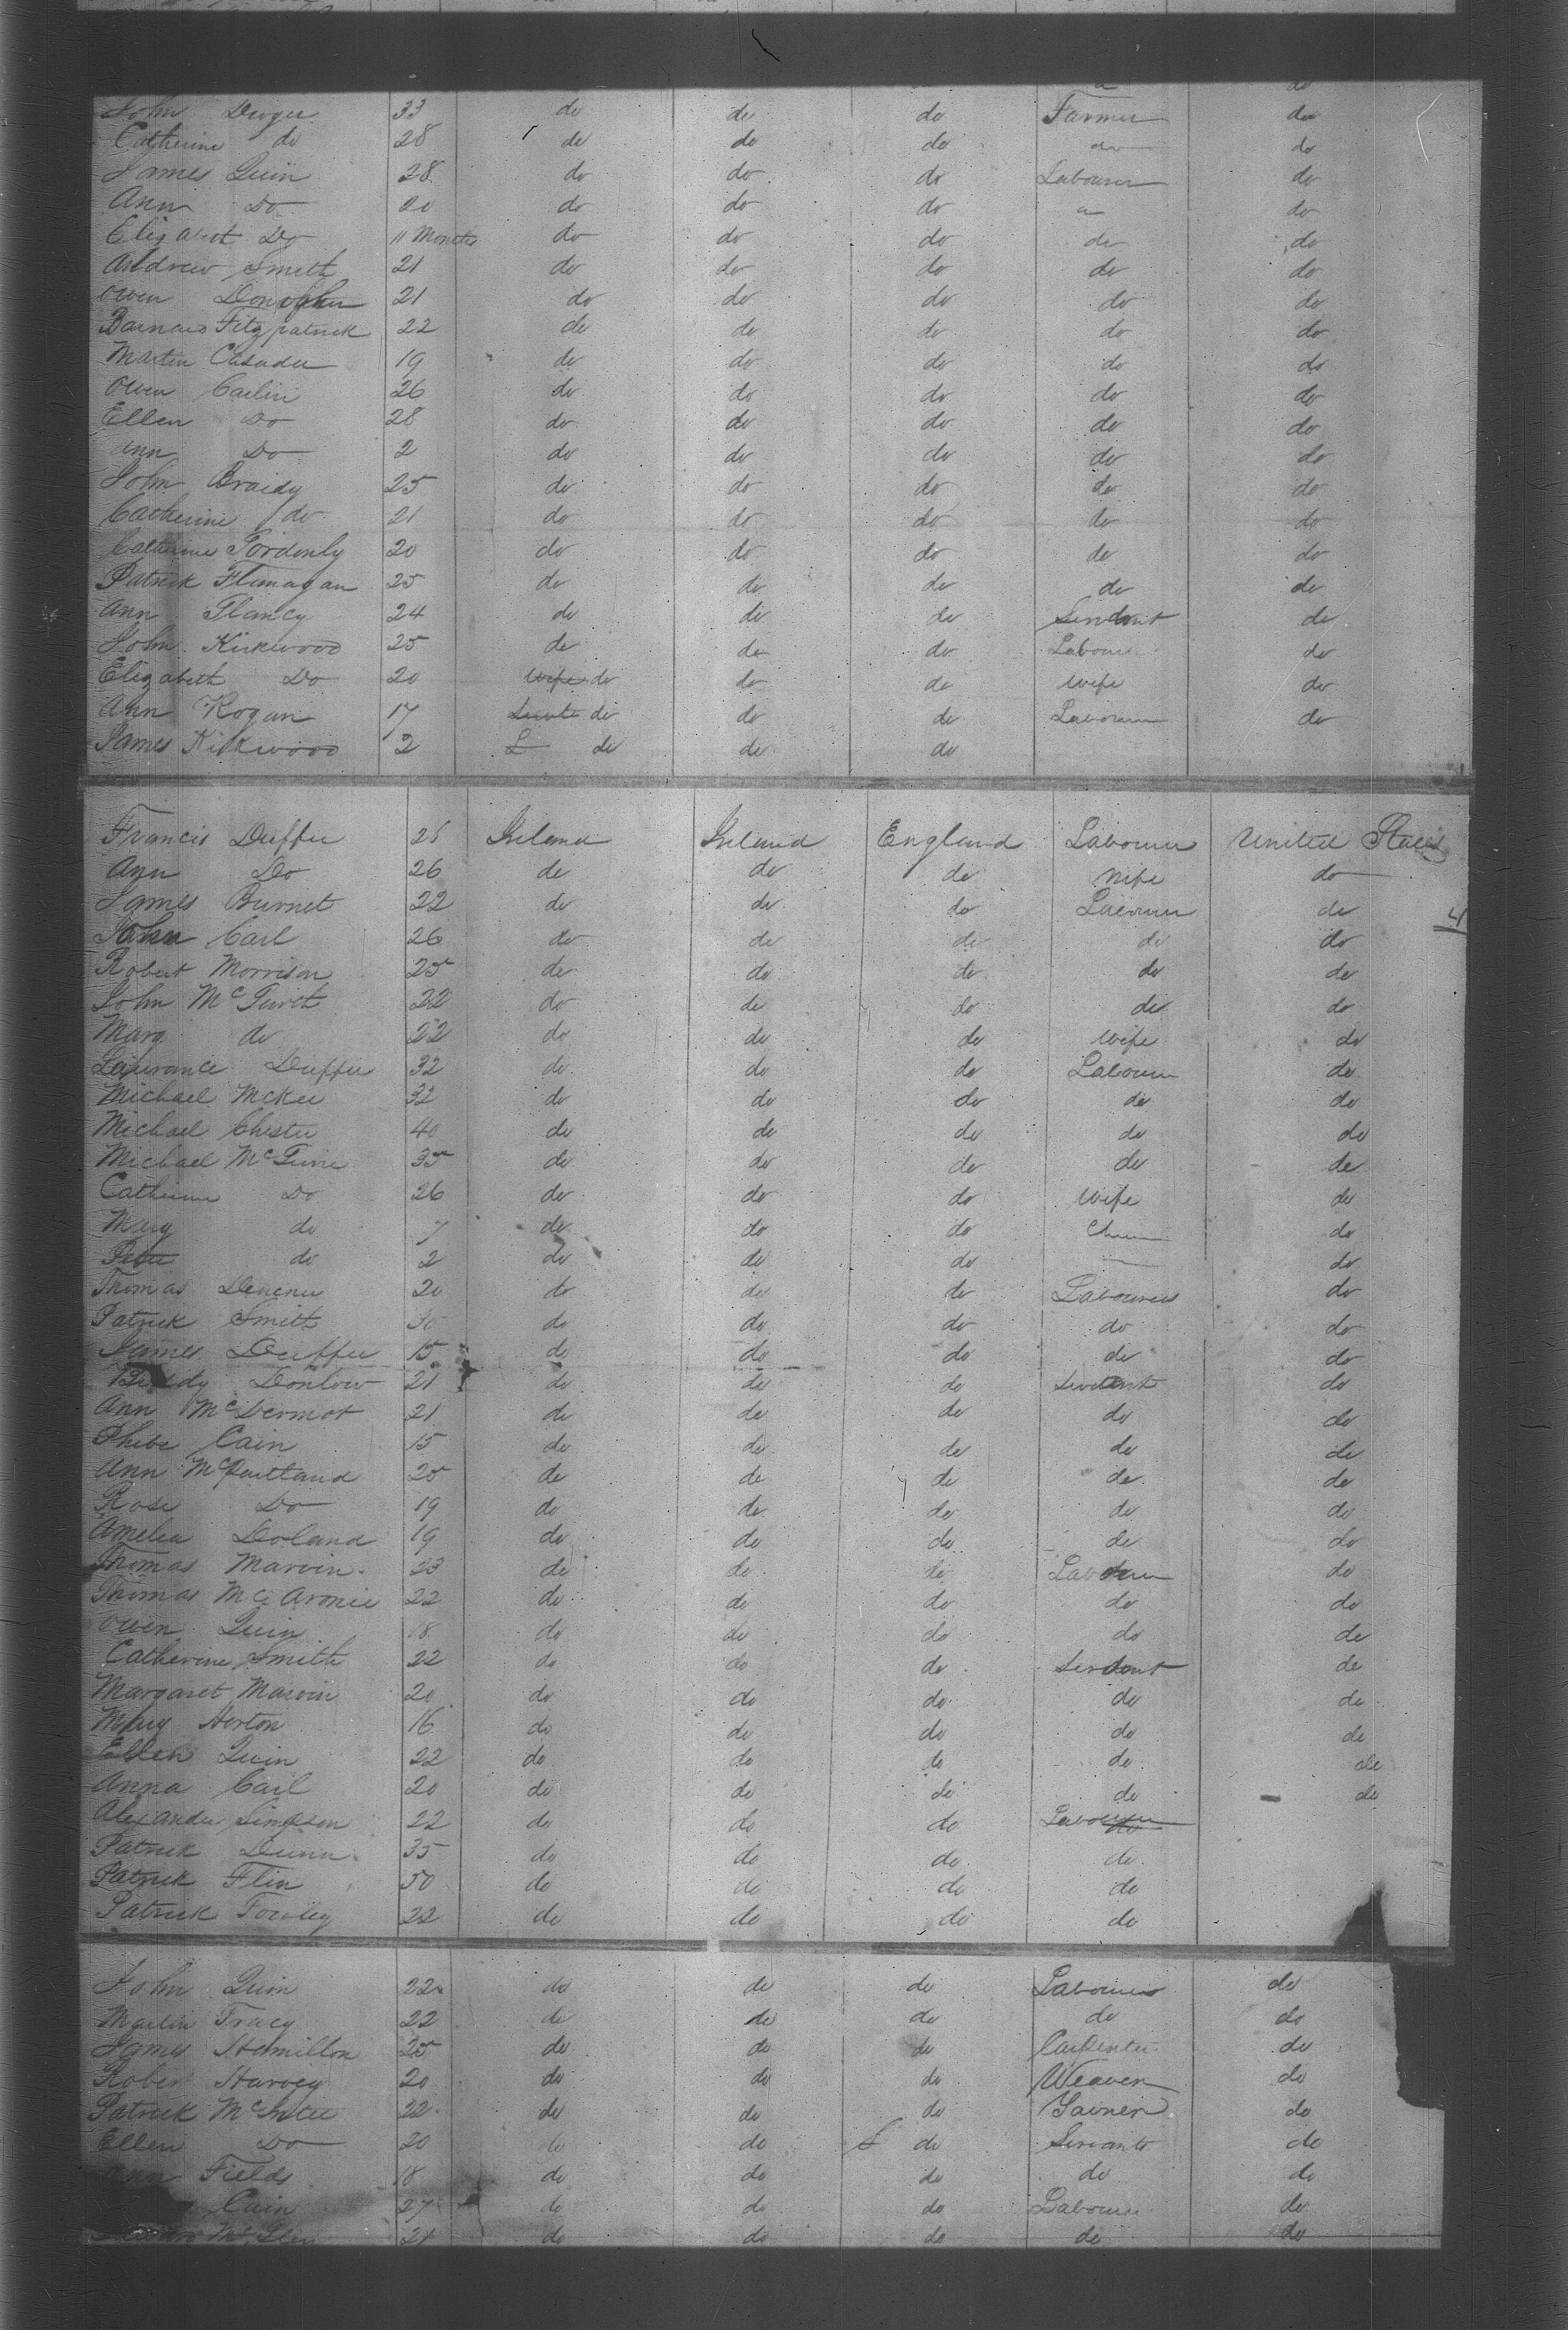 John Dwyer 33 do do do Farmer do
Catherine do 28 do do do do do
James Quin 28 do do do Labourer do
Ann Do 20 do do do " do
Elizabeth Do 11 Months do do do do do
Andrew Smith 21 do do do do do
Owen Donoghu 21 do do do do do
Barnard Fitzpatrick 22 do do do do do
Martin 19 do do do do do
Owen Carlin 26 do do do do do
Ellen Do 28 do do do do do
Ann Do 2 do do do do do
John Braidy 25 do do do do do
Catherine do 21 do do do do do
Catherine 20 do do do do do
Patrick Flanagan 25 do do do do do
Ann Clancy 24 do do do Servant do
John Kirkwood 25 do do do Labourer do
Elizabeth Do 20 do do do Wife do
Ann Rogan 17 do do do Labourer do
James Kirkwood 2 do do do
Francis Duffee 25 Ireland Ireland England Labourer United States
Ann Do 26 do do do Wife do
James Burnet 22 do do do Labourer do
John Carl 26 do do do do do
Robert Morrison 25 do do do do do
John 22 do do do do do
Marg do 22 do do do Wife do
Laurance Duffee 32 do do do Labourer do
Michael McKee 32 do do do do do
Michael Chester 40 do do do do do
Michael McGuire 35 do do do do do
Catherine Do 26 do do do Wife do
Mary do 7 do do do do
Peter do 2 do do do do
Thomas 20 do do do Labourers do
Patrick Smith 30 do do do do do
James Duffee 15 do do do do do
Biddy Donlow 21 do do do Servant do
Ann McDermot 21 do do do do do
Phebe Cain 15 do do do do do
Ann McPartland 25 do do do do do
Rose Do 19 do do do do do
Amelia Doland 19 do do do do do
Thomas Marvin 23 do do do Labourer do
Thomas Mc Aronie 22 do do do do do
Owen Quin 18 do do do do do
Catherine Smith 22 do do do Servant do
Margaret Marvin 20 do do do do do
Mary Horton 16 do do do do do
Ellen Quin 22 do do do do do
Anna Carl 20 do do do do do
Alexander Simpson 22 do do do Labourer
Patrick Dunn 35 do do do do
Patrick Flin 50 do do do do
Patrick Towley 22 do do do do
John Quin 22 do do do Labourer do
Martin Tracy 22 do do do do do
James Hamilton 25 do do do Carpenter do
Rober Harvey 20 do do do Weaver do
Patrick McIntee 22 do do do Joiner do
Ellen Do 20 do do do Servants do
Ann Fields 18 do do do do do
Cain 27 do do do Labourer do
21 do do do do do